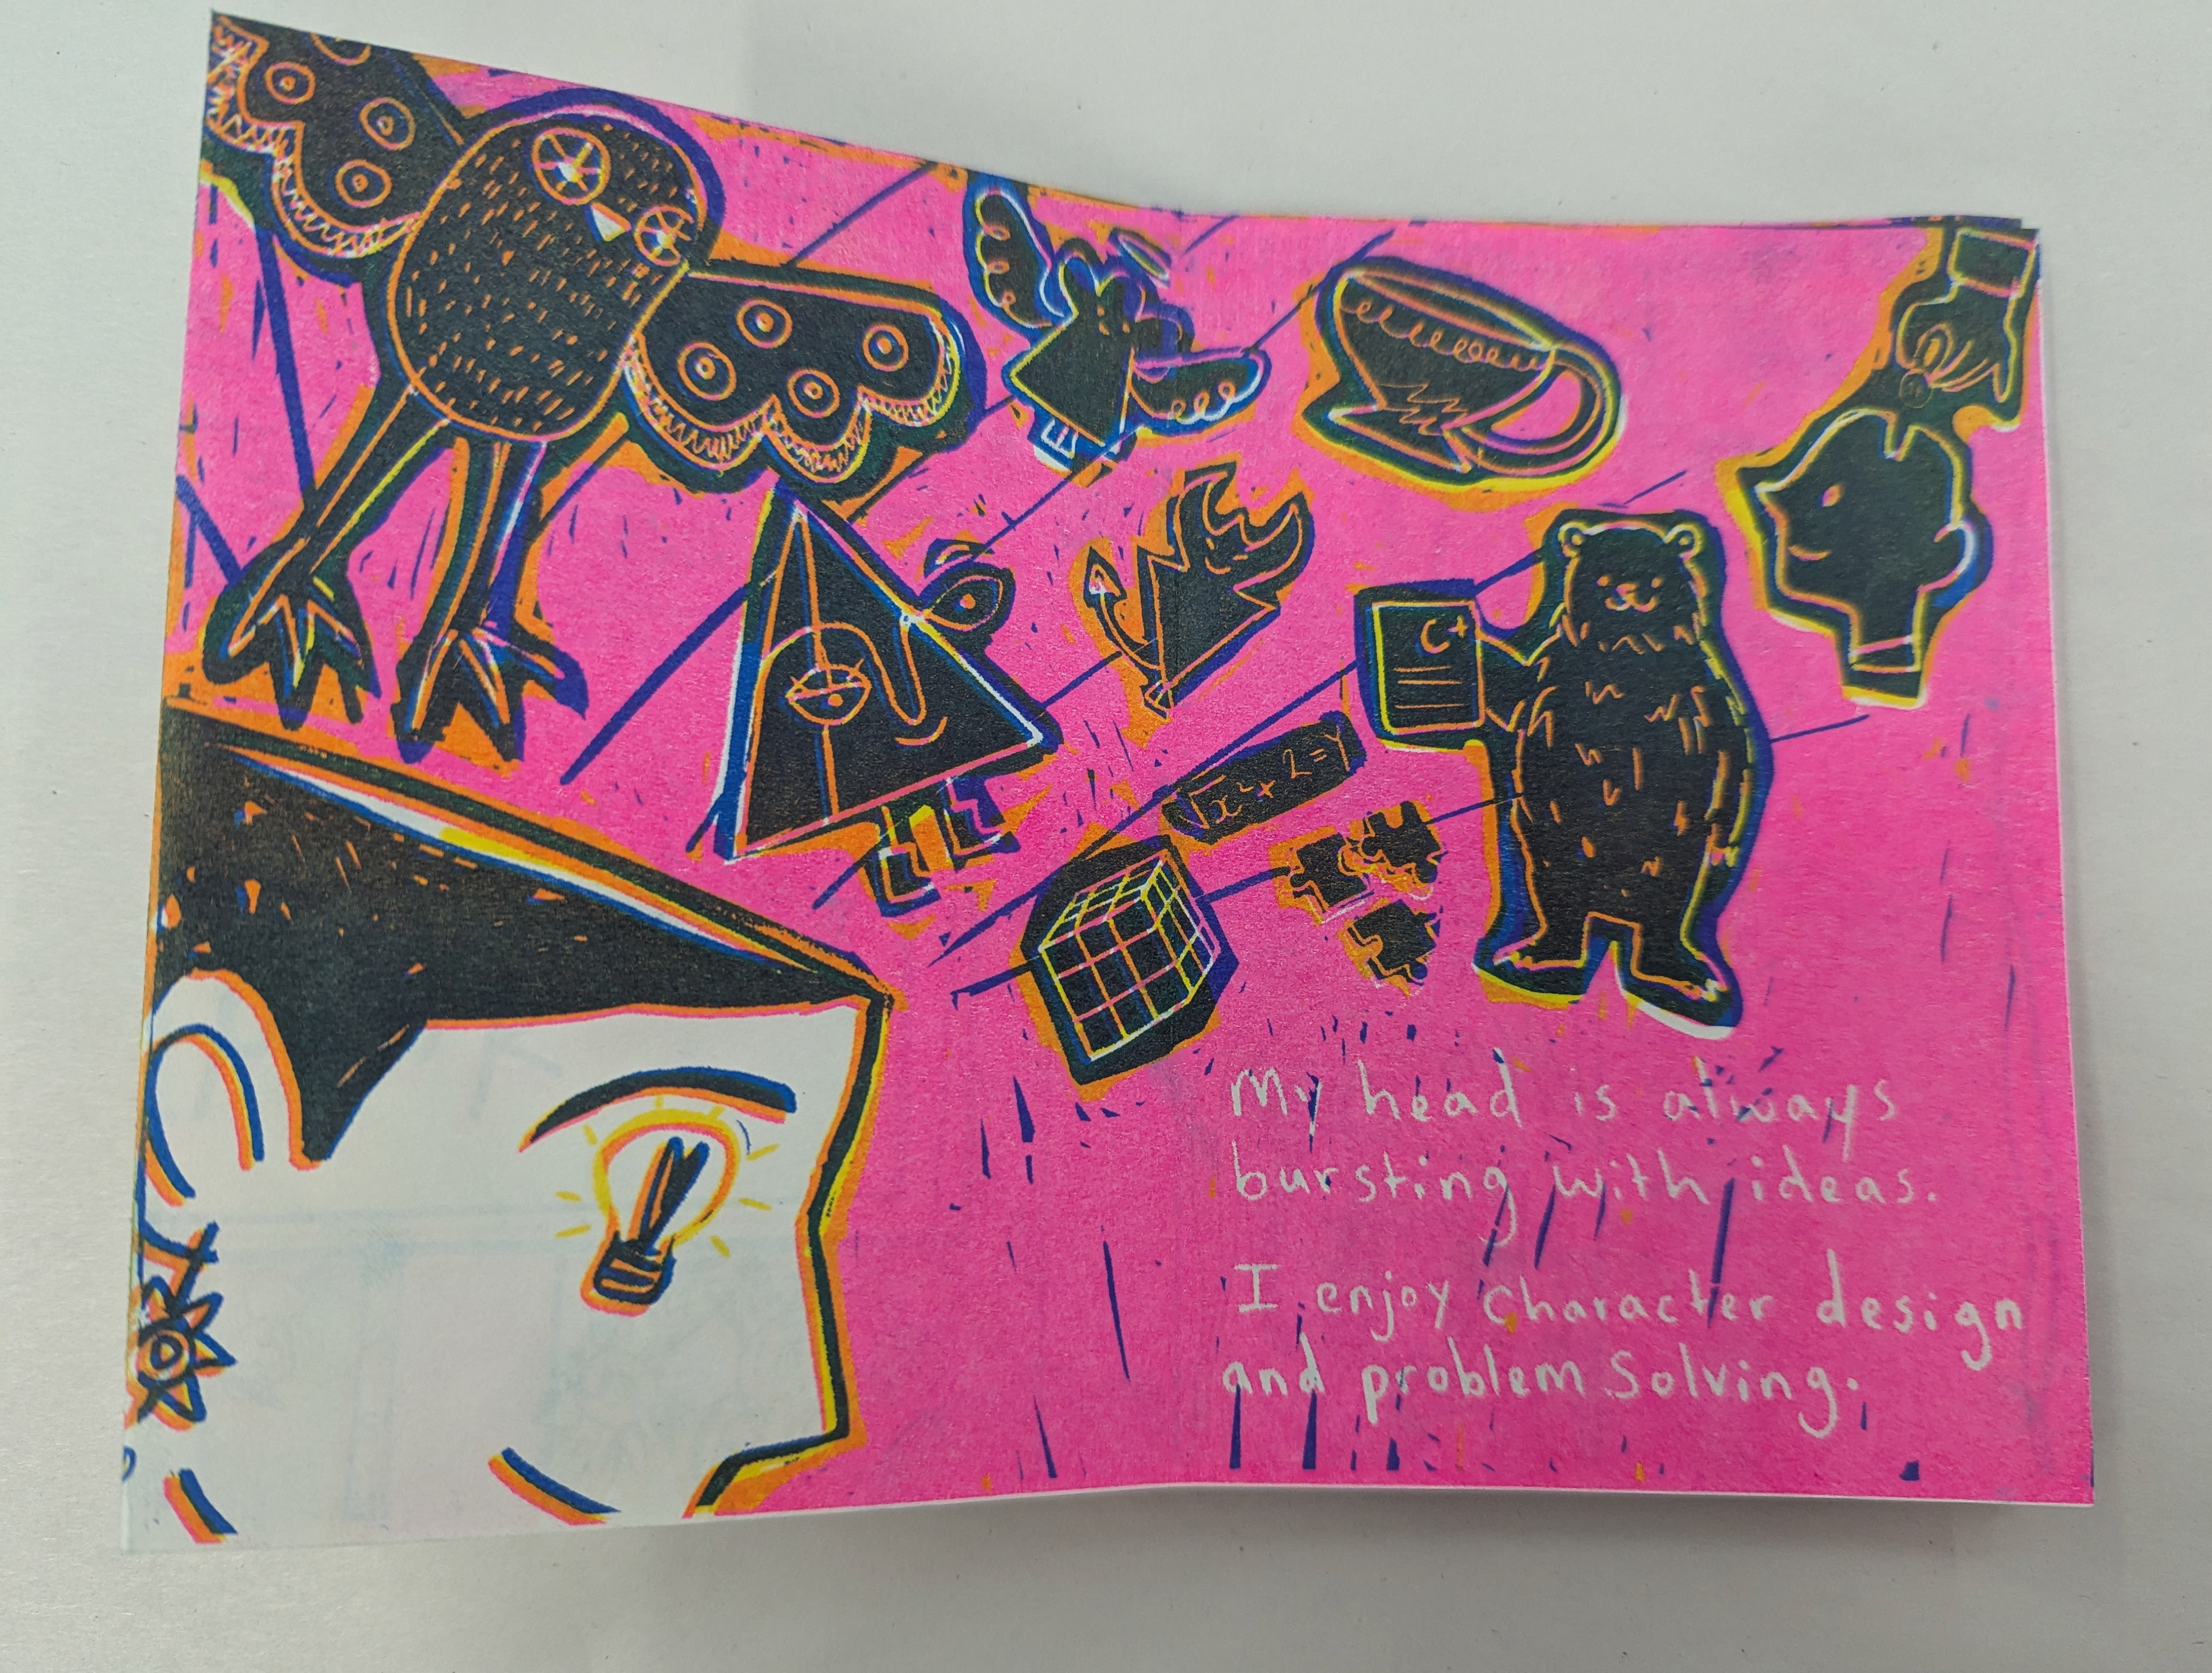 √x⁴+2=Y
My head is always
bursting with ideas.
I enjoy Character design
and problem Solving.